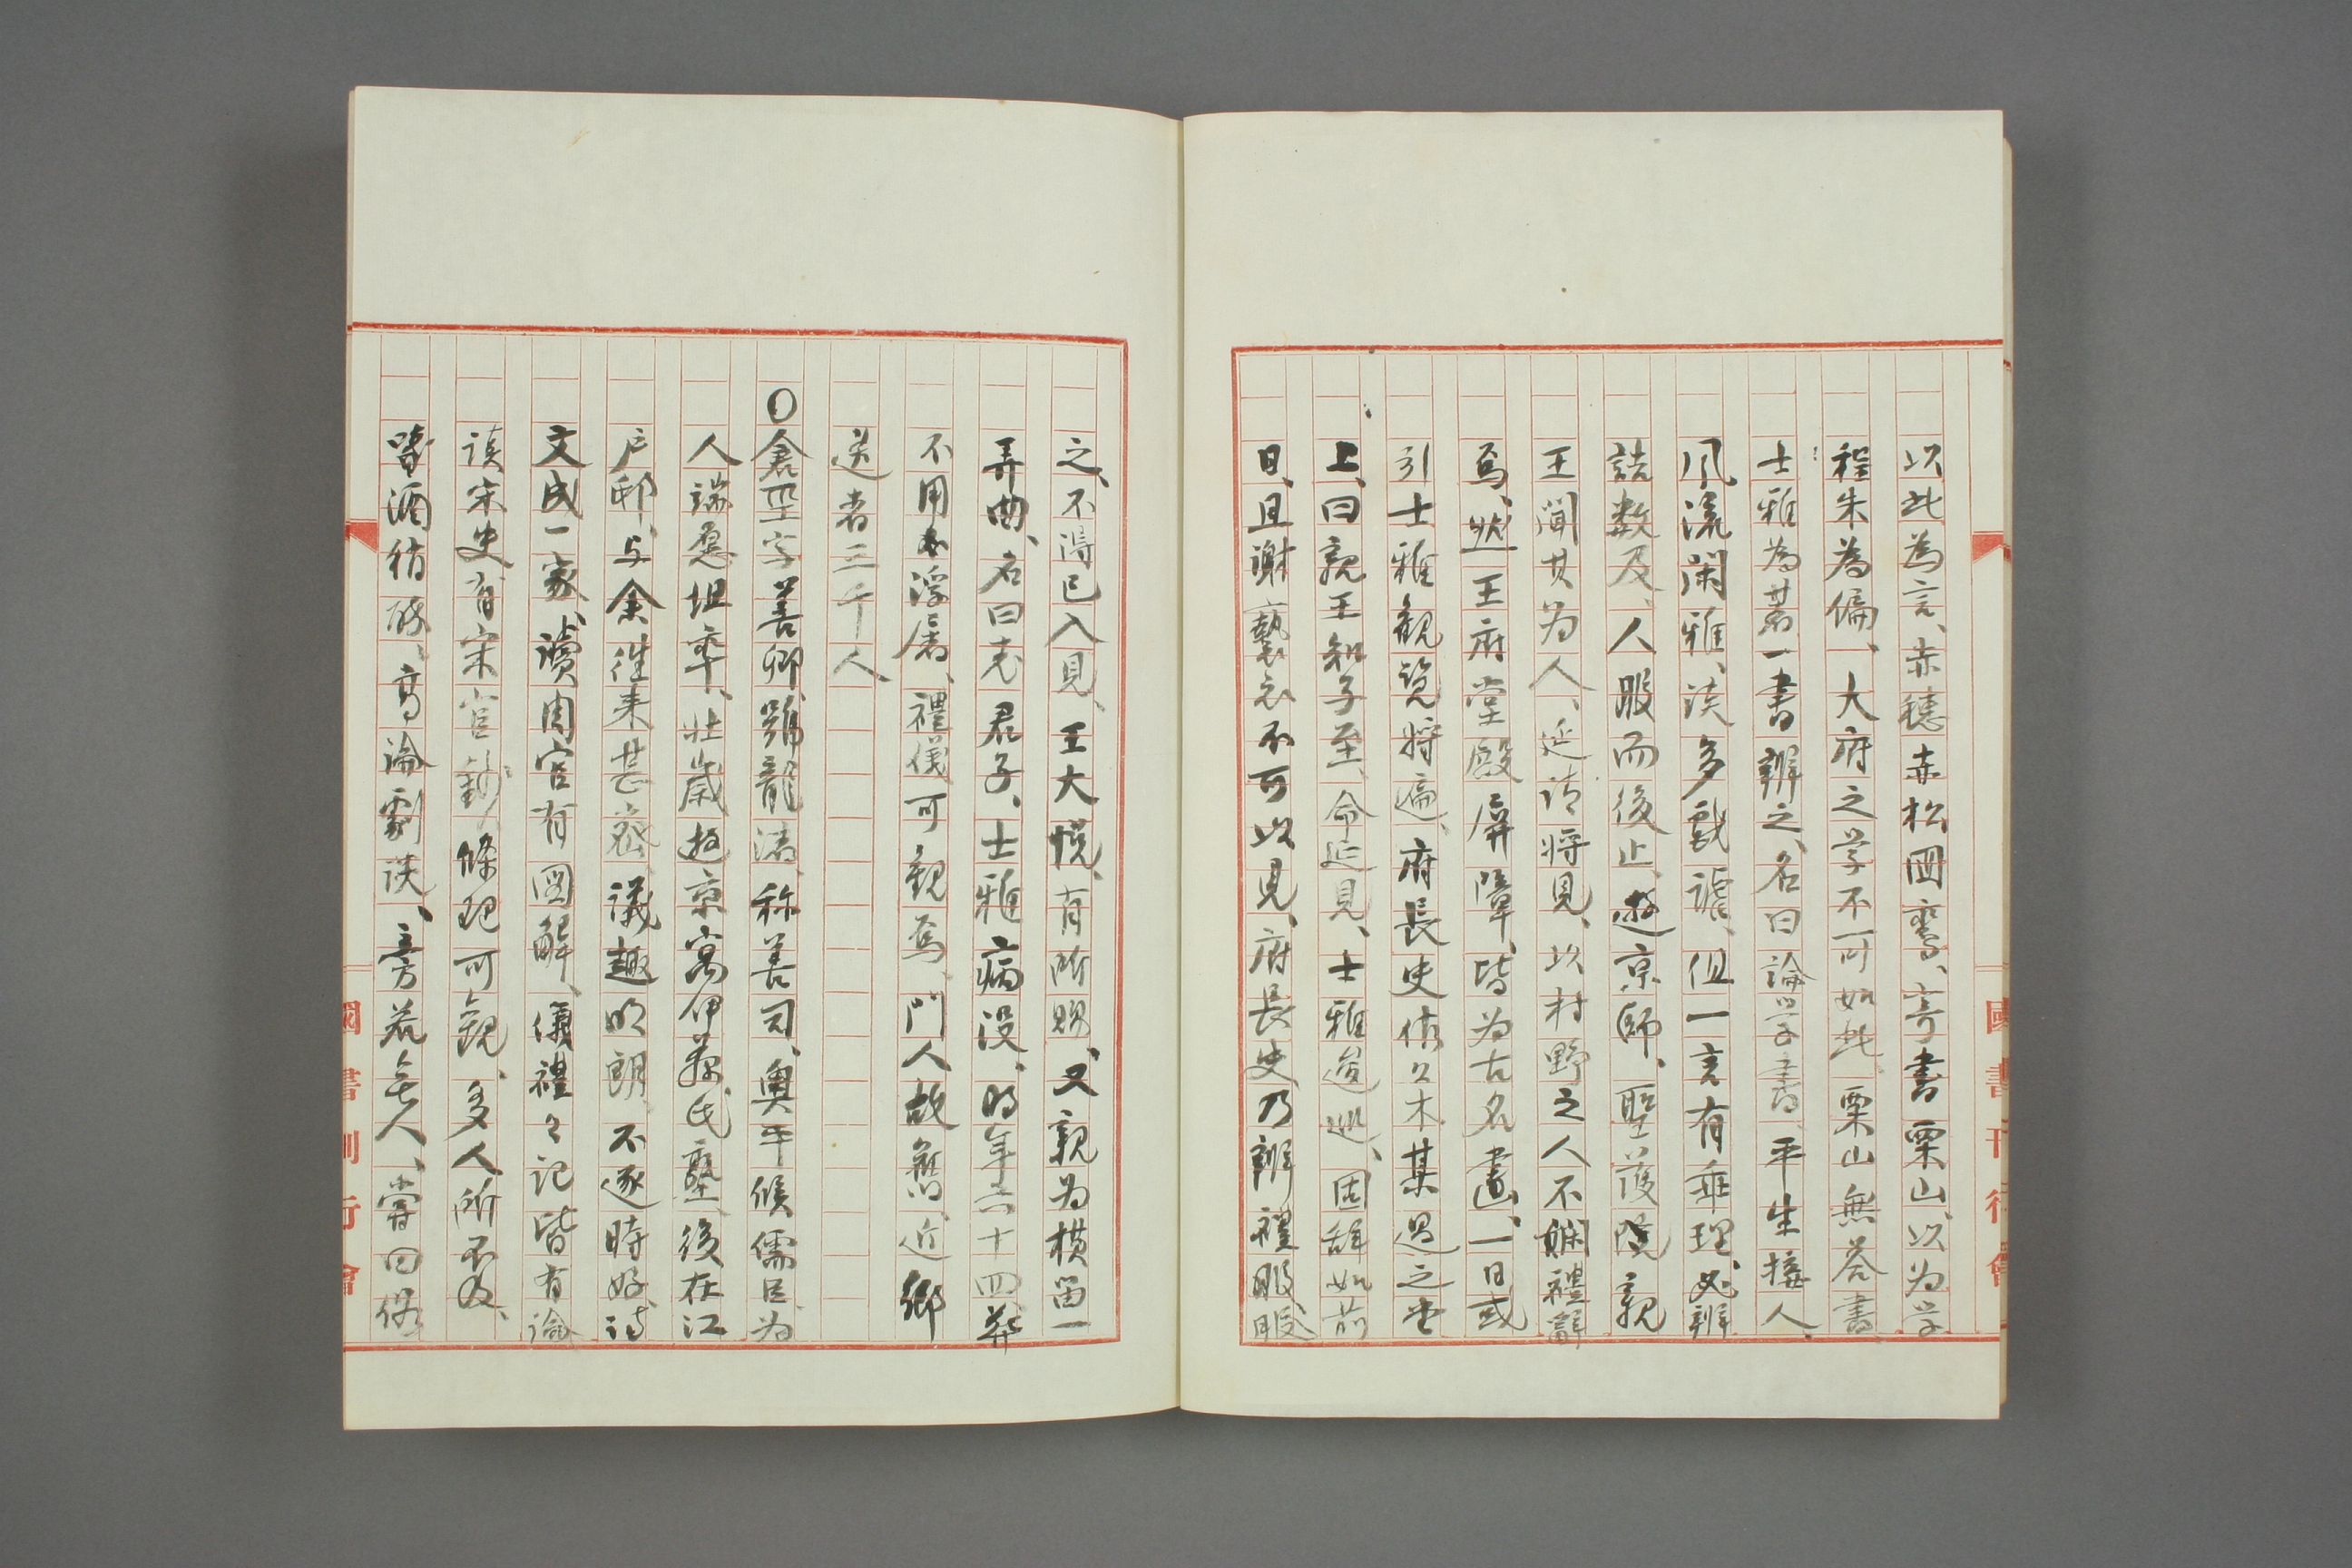 以此為言、赤穗赤松国鸞、寄書栗山、以为学
程朱為偏、大府之学不可如此、栗山無荅書
士雅為著一書辨之、名曰論学書、平生接人、
風流閑雅、談多戲謔、但一言有乖理、必辨
詰数反、人服而後止、遊京師、聖護院親
王聞其为人、延請将見、以村野之人不嫻禮辭
焉、然王府堂殿屏障、皆为古名畫、一日或
引士雅観覧将遍、府長史佐々木某遇之堂
上、曰親王知子至、命延見、士雅逡巡、固辞如前
日、且謝褻衣不可以見、府長史乃辦禮服服
之、不得已入見、王大悦、有所賜、又親为横笛一
弄曲、名曰老君子、士雅病没、時年六十四、葬
不用浮屠、禮儀可観焉、門人故舊、近鄉
送者三千人
○倉垩字善卿、號龍渚、称善司、奥平候儒臣、为
人端愨坦率、壮歳遊京寓伊藤氏塾、後在江
戸邸、与余徃来甚密、議趣明朗、不逐時好、詩
文成一家、讀周官有図解、儀禮々記皆有論
談宋史有宋官鈔、條理可観、多人所不及、
嘗酒稍酣、高論劇談、旁若無人、嘗曰俗
國書刊行會
國書刊行會